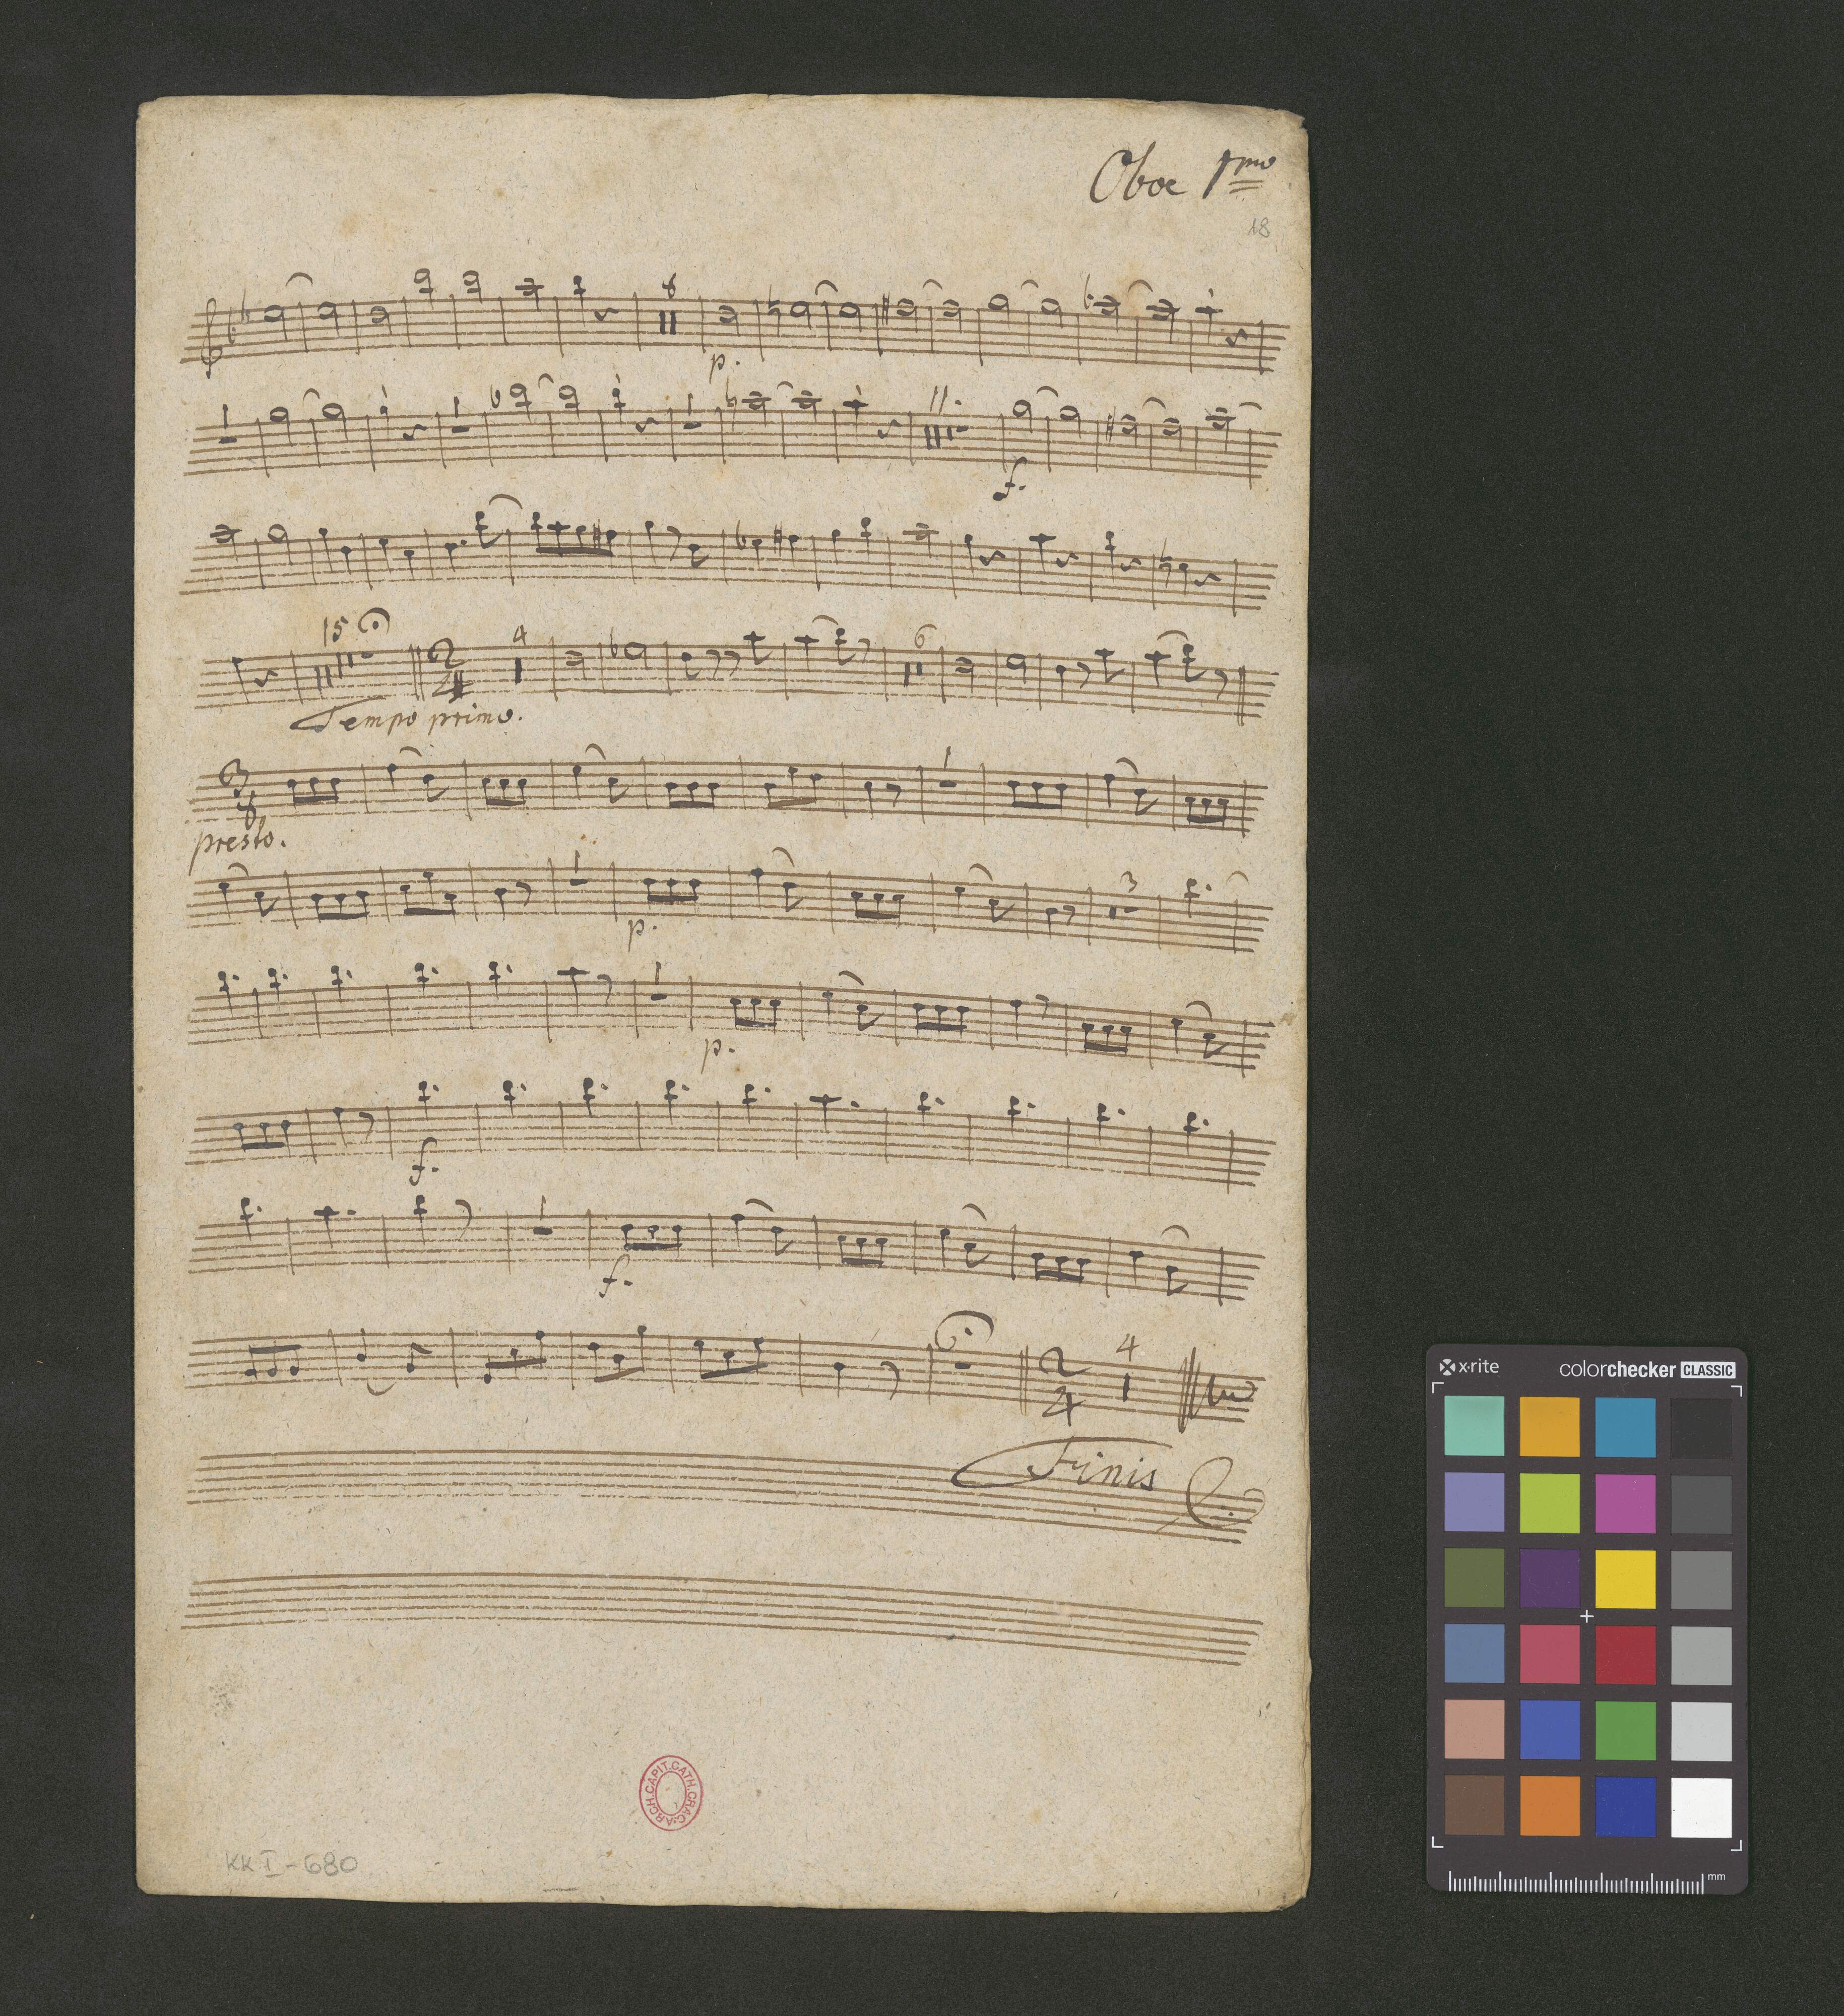 Oboe 1mo
18
8
p.
1 1 1 11.
f.
15 4 6
2
4
Tempo primo.
3
8
1
presto.
1 3
p.
1
p.
f.
1
f.
2
4
4
Finis
ARCH.CAPIT.CATH.CRAC.
KK I-680
x·rite colorchecker CLASSIC
mm